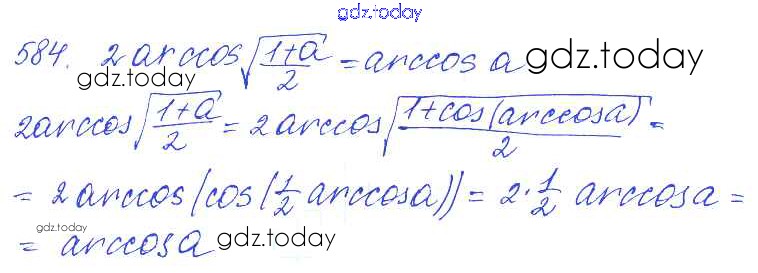 gdz.today
584. 2 arccos √((1+a)/2) = arccos a gdz.today
gdz.today
2arccos √((1+a)/2) = 2arccos √((1+cos(arccosa))/2) =
= 2 arccos(cos(1/2 arccosa)) = 2·1/2 arccosa =
gdz.today
= arccosa gdz.today